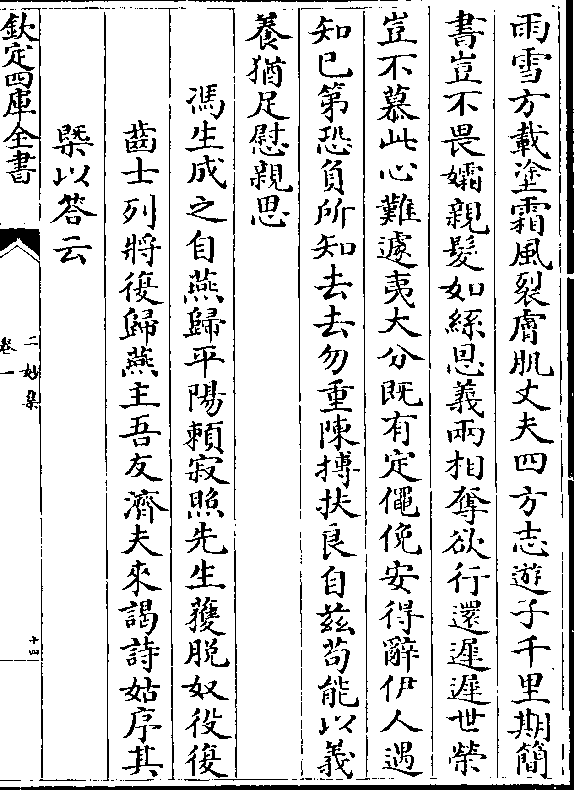 雨雪方載塗霜風裂膚肌丈夫四方志遊子千里期簡
書豈不畏孀親髮如絲恩義兩相奪欲行還遲遲世榮
豈不慕此心難遽夷大分既有定僶俛安得辭伊人遇
知已第恐負所知去去勿重陳搏扶良自兹苟能以義
養猶足慰親思
馮生成之自燕歸平陽賴寂照先生獲脱奴役復
齒士列將復歸燕主吾友濟夫來謁詩姑序其
槩以答云
欽定四庫全書
二妙集
卷一
十四